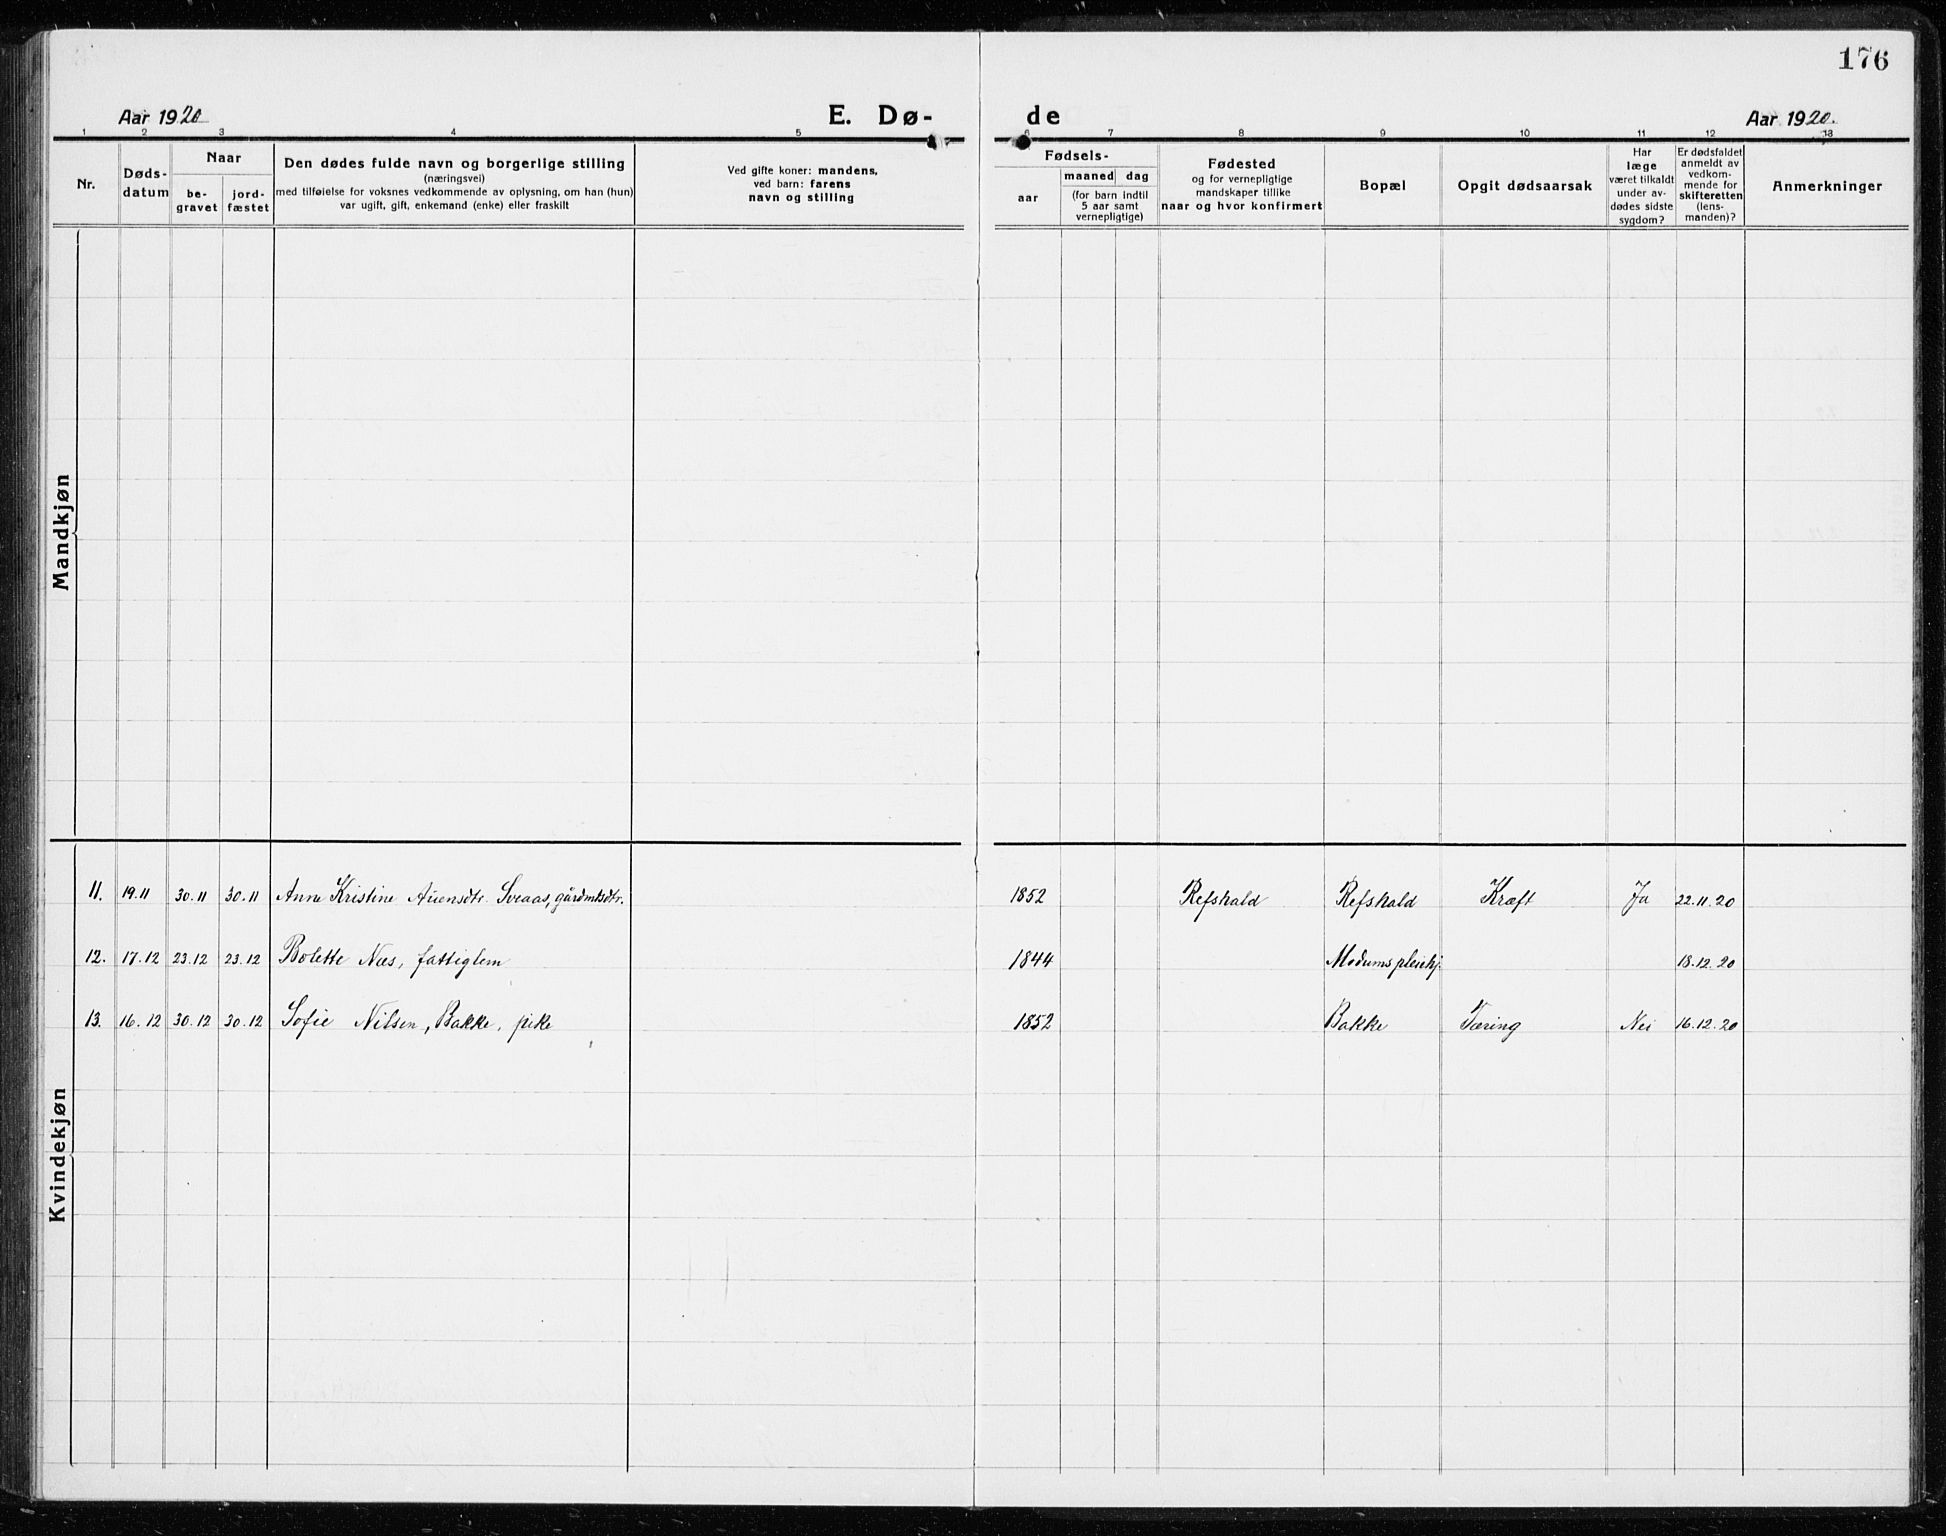 176
Aar 1920
E. Dø-
de
Aar 1920.
1 2 3 4 5 6 7 8 9 10 11 12 13
Nr.
Døds-
datum
Naar
be-
gravet
jord-
fæstet
Den dødes fulde navn og borgerlige stilling
(næringsvei)
med tilføielse for voksnes vedkommende av oplysning, om han (hun)
var ugift, gift, enkemand (enke) eller fraskilt
Ved gifte koner: mandens,
ved barn: farens
navn og stilling
Fødsels-
aar
maaned dag
(for barn indtil
5 aar samt
vernepligtige)
Fødested
og for vernepligtige
mandskaper tillike
naar og hvor konfirmert
Bopæl
Opgit dødsaarsak
Har
læge
været tilkaldt
under av-
dødes sidste
sygdom?
Er dødsfaldet
anmeldt av
vedkom-
mende for
skifteretten
(lens-
manden)?
Anmerkninger
Mandkjøn
Kvindekjøn
11. 19.11 30.11 30.11 Anne Kristine Auensdtr. Sveaas, gårdmdsdtr. 1852 Refshald Refshald Kræft Ja 22.11.20
12. 17.12 23.12 23.12 Bolette Næs, fattiglem 1844 Modums pleiehj. 18.12.20
13. 16.12 30.12 30.12 Sofie Nilsen, Bakke, pike 1852 Bakke Tæring Nei 16.12.20